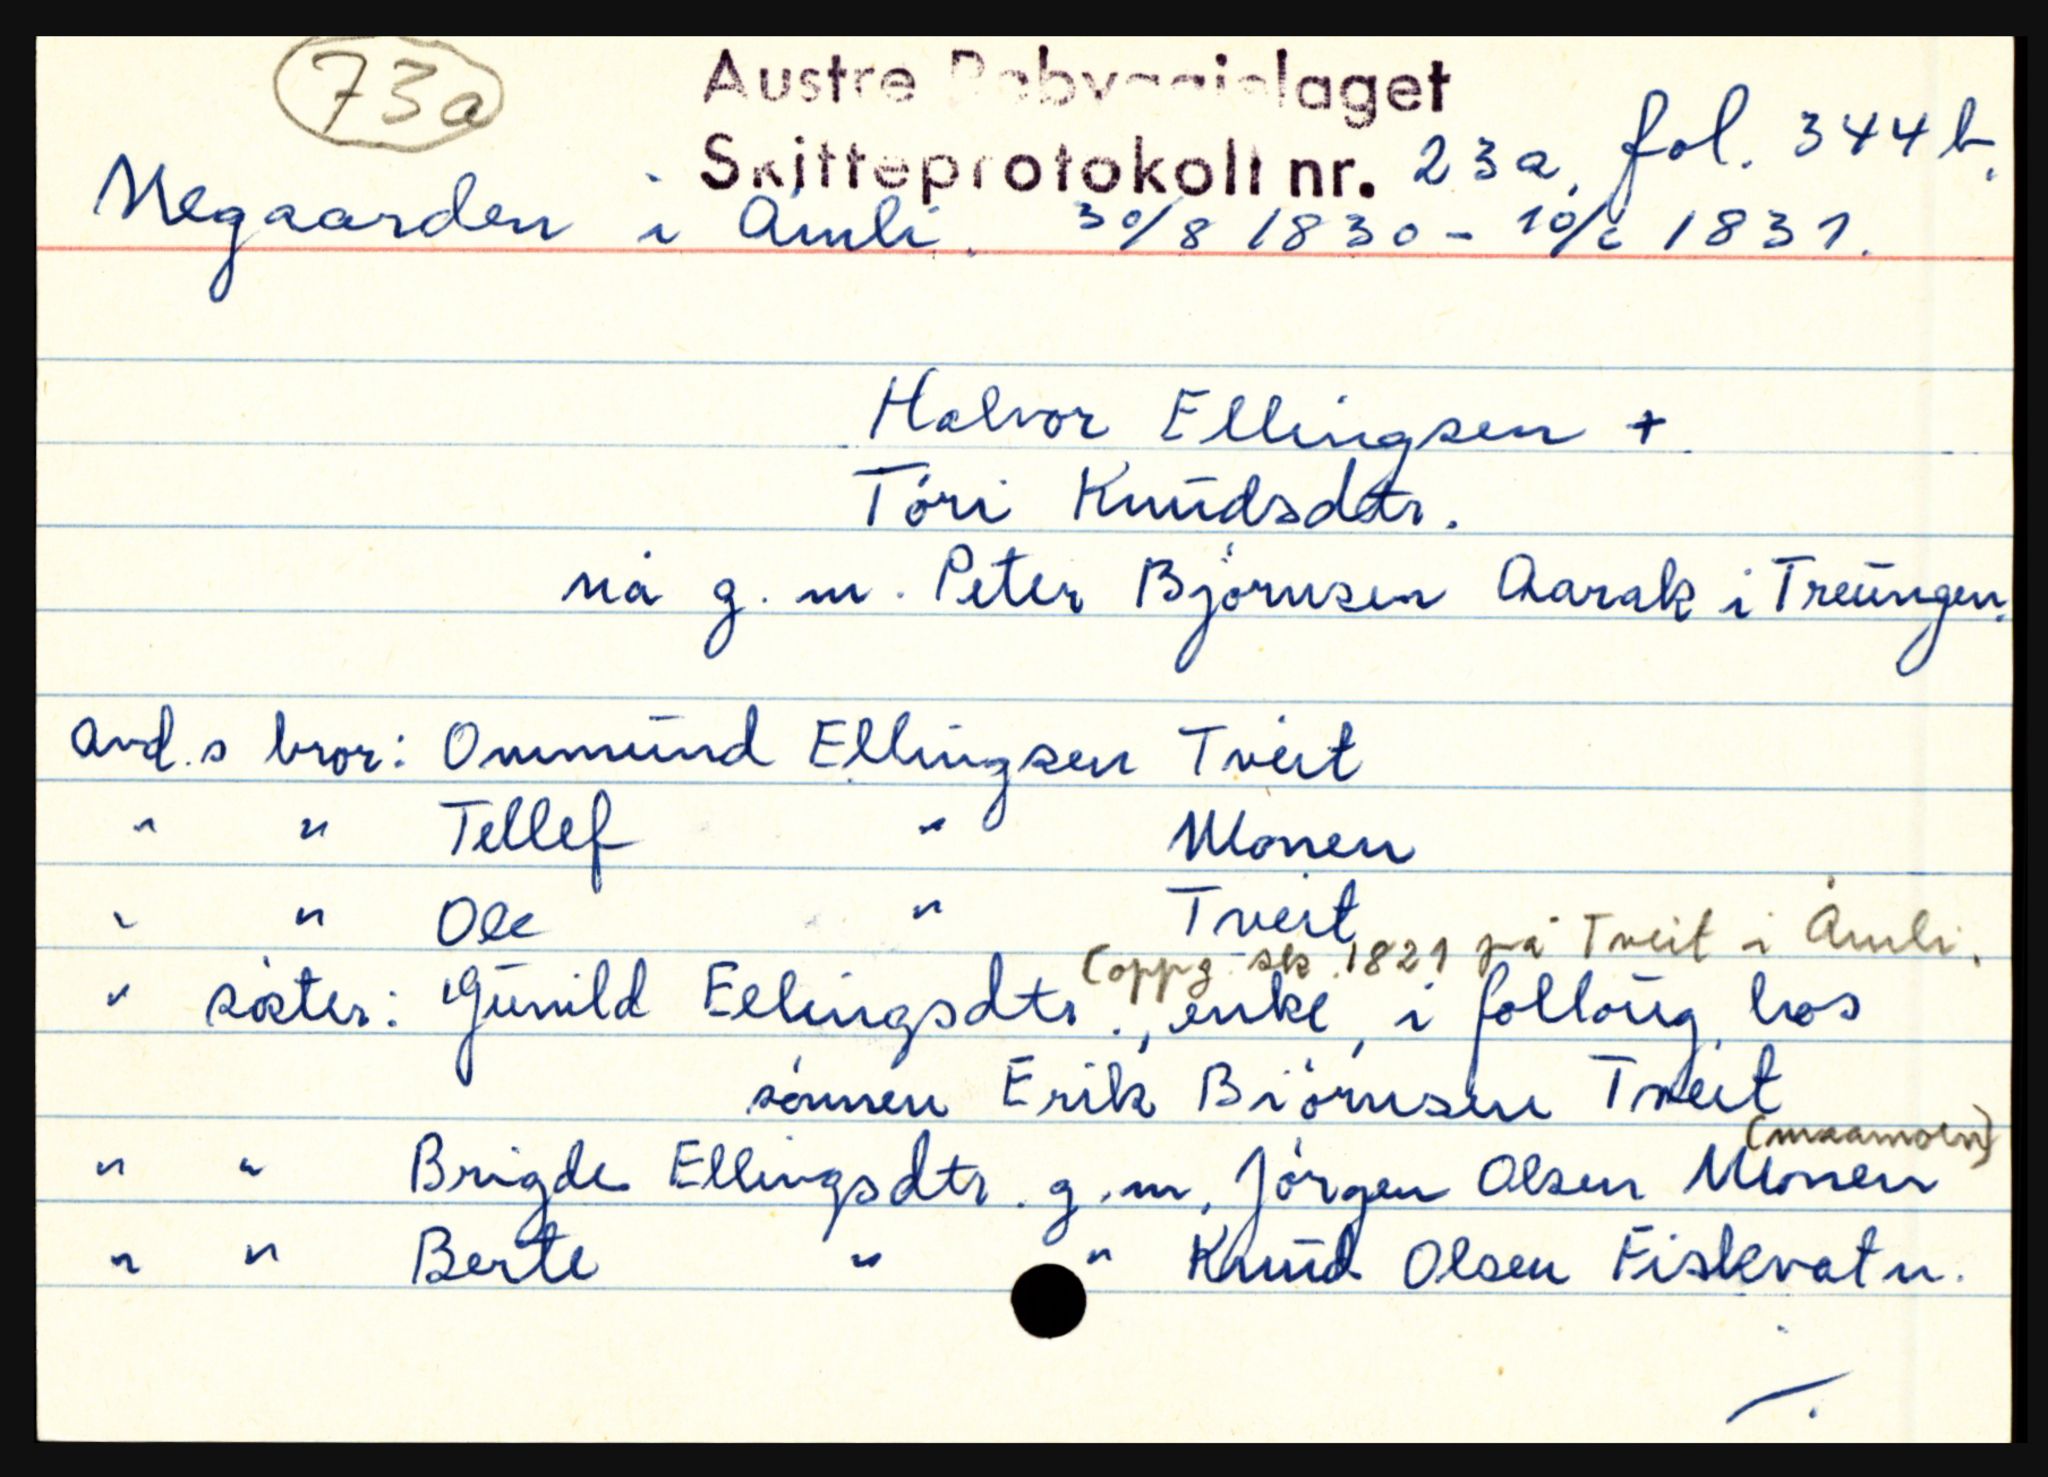 73a
Austre Råbyggjelaget
Skifteprotokoll nr. 23a, fol. 344b.
Negaarden i Åmli. 30/8 1830 - 10/6 1831.
Halvor Ellingsen +
Tóri Knudsdtr.
nå g. m. Peter Björnsen Aarak i Treungen.
avd.s bror: Ommund Ellingsen Tveit
" " Tellef " Monen
" " Ole " Tveit
(oppg. sk. 1821 på Tveit i Åmli.
" söster: Gunild Ellingsdtr., enke, i follóug hos
sönnen Erik Biörnsen Tveit
(maamoen)
" " Brigde Ellingsdtr. g.m. Jörgen Olsen Monen
" " Berte " " Knud Olsen Fiskvatn.